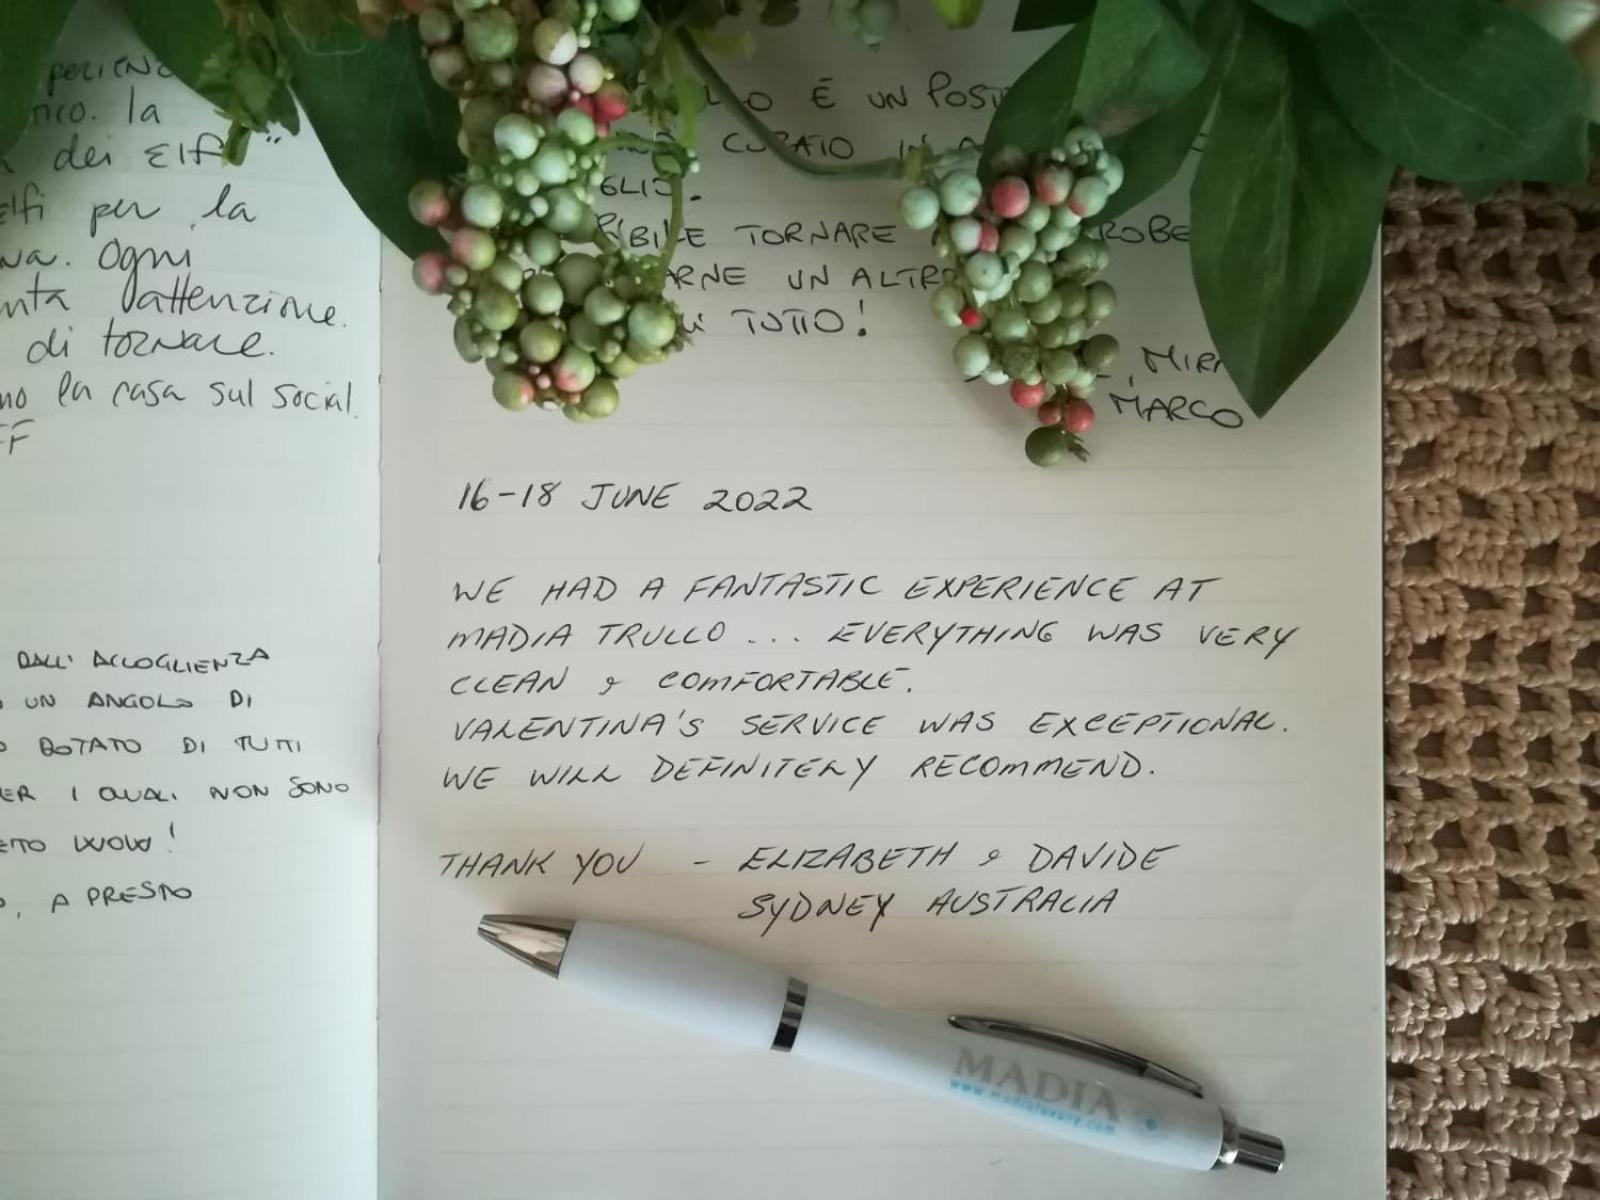 la
dei Elfi"
per la
Ogni
attenzione.
di tornare.
la casa sul social.
DALL' ACCOGLIENZA
UN ANGOLO DI
DOTATO DI TUTTI
I QUALI NON SONO
WOW!
, A PRESTO
È UN
CURATO IN
TORNARE
UN ALTRO
TUTTO!
MARCO
16-18 JUNE 2022
WE HAD A FANTASTIC EXPERIENCE AT
MADIA TRULLO ... EVERYTHING WAS VERY
CLEAN & COMFORTABLE.
VALENTINA'S SERVICE WAS EXCEPTIONAL.
WE WILL DEFINITELY RECOMMEND.
THANK YOU - ELIZABETH & DAVIDE
SYDNEY AUSTRALIA
MADIA
www.madialuxury.com